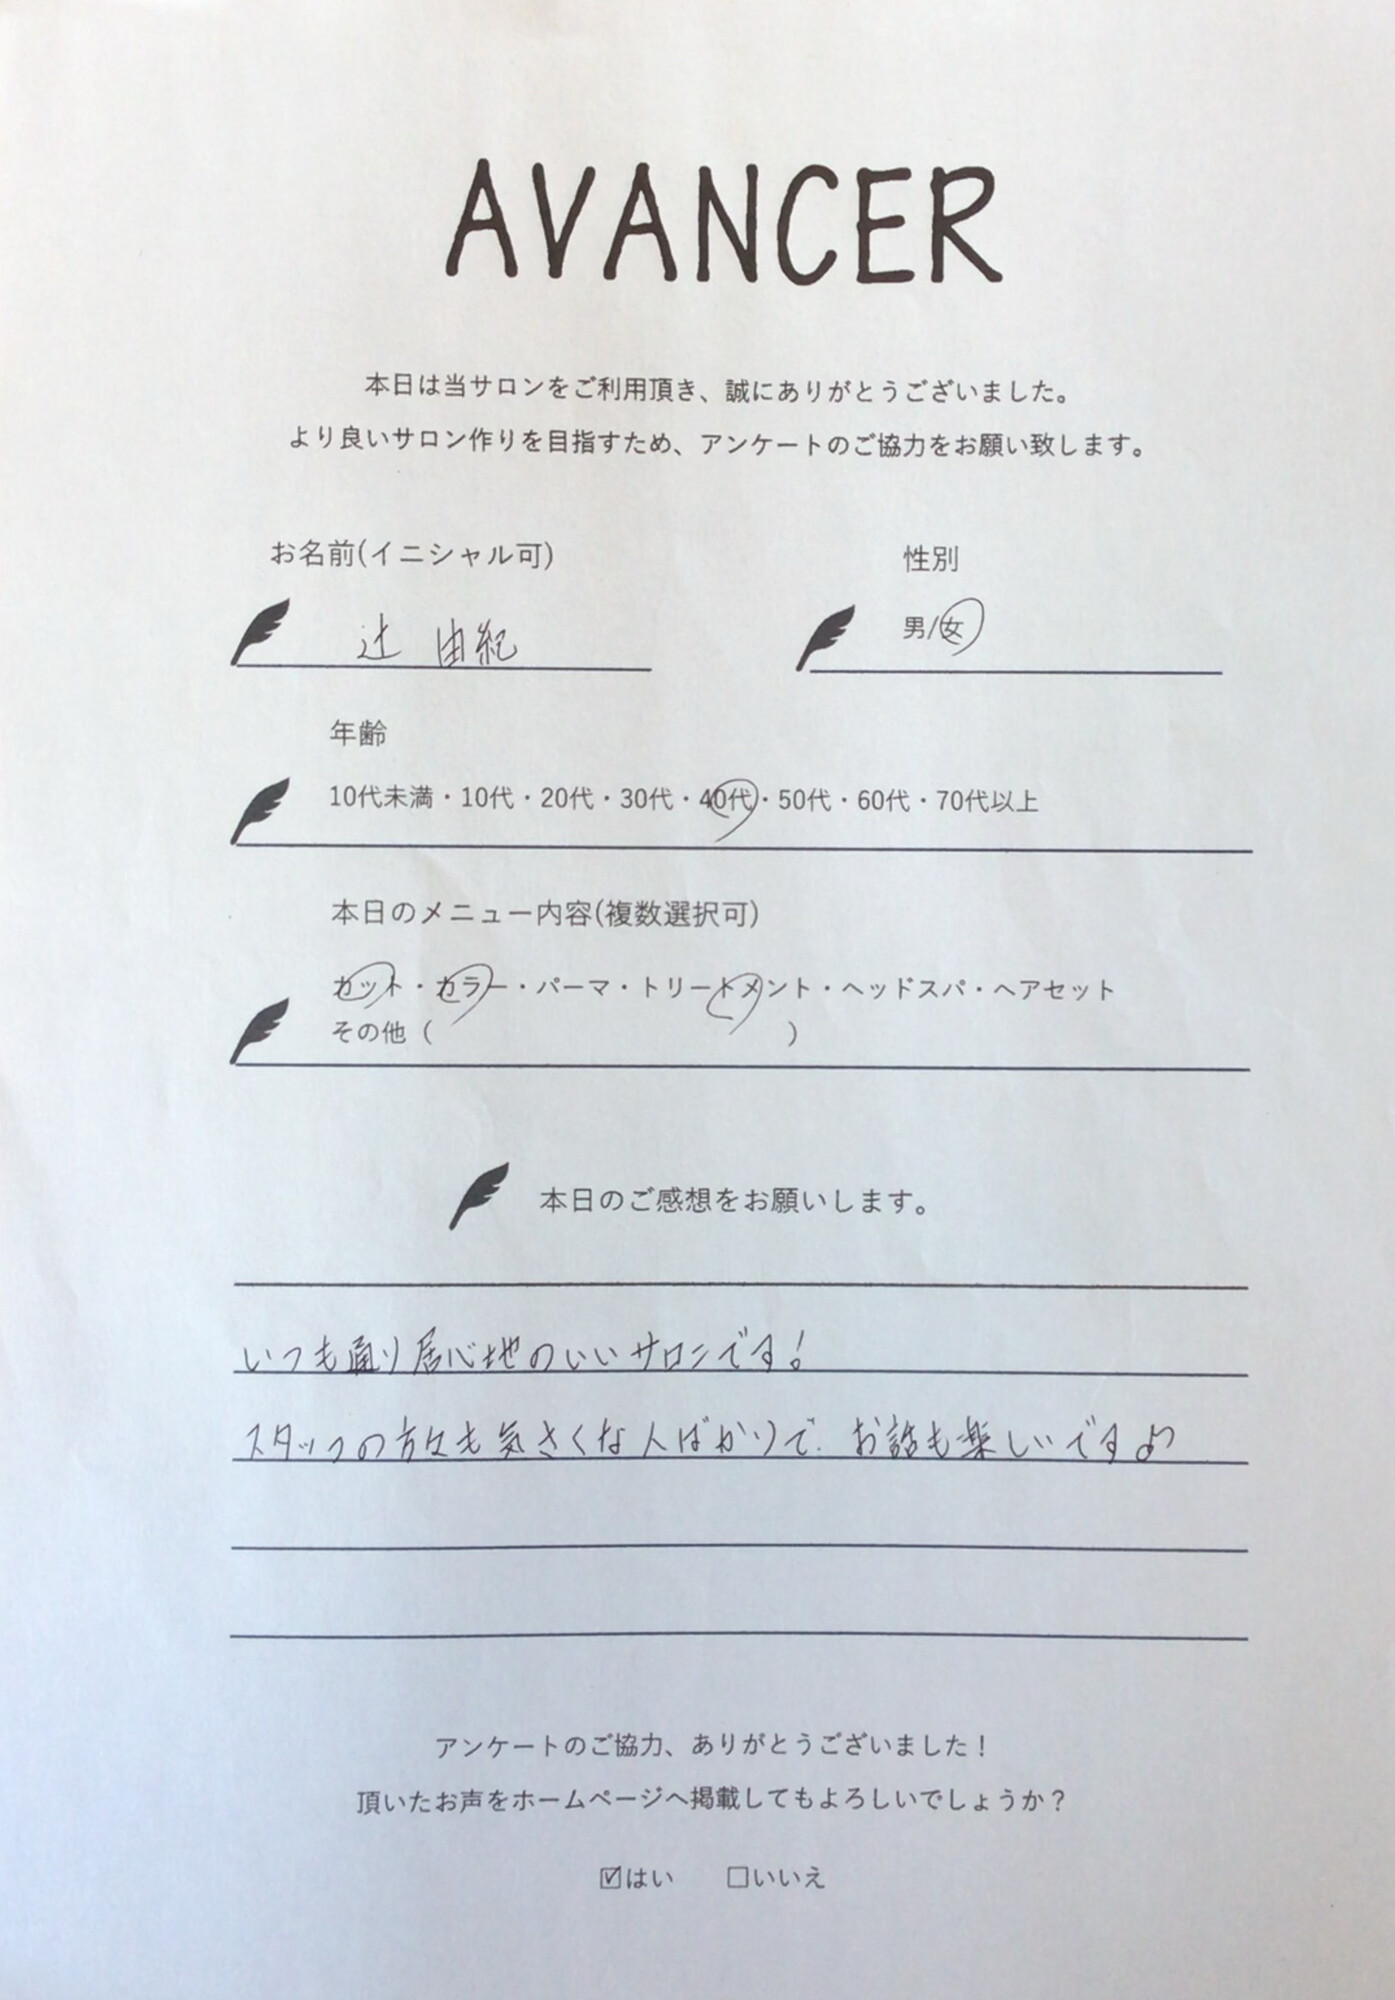 AVANCER
本日は当サロンをご利用頂き、誠にありがとうございました。
より良いサロン作りを目指すため、アンケートのご協力をお願い致します。
お名前(イニシャル可)
辻 由紀
性別
男/女
年齢
10代未満・10代・20代・30代・40代・50代・60代・70代以上
本日のメニュー内容(複数選択可)
カット・カラー・パーマ・トリートメント・ヘッドスパ・ヘアセット
その他（ ）
本日のご感想をお願いします。
いつも通り居心地のいいサロンです!
スタッフの方々も気さくな人ばかりで、お話も楽しいですよ
アンケートのご協力、ありがとうございました！
頂いたお声をホームページへ掲載してもよろしいでしょうか？
☑はい ☐いいえ